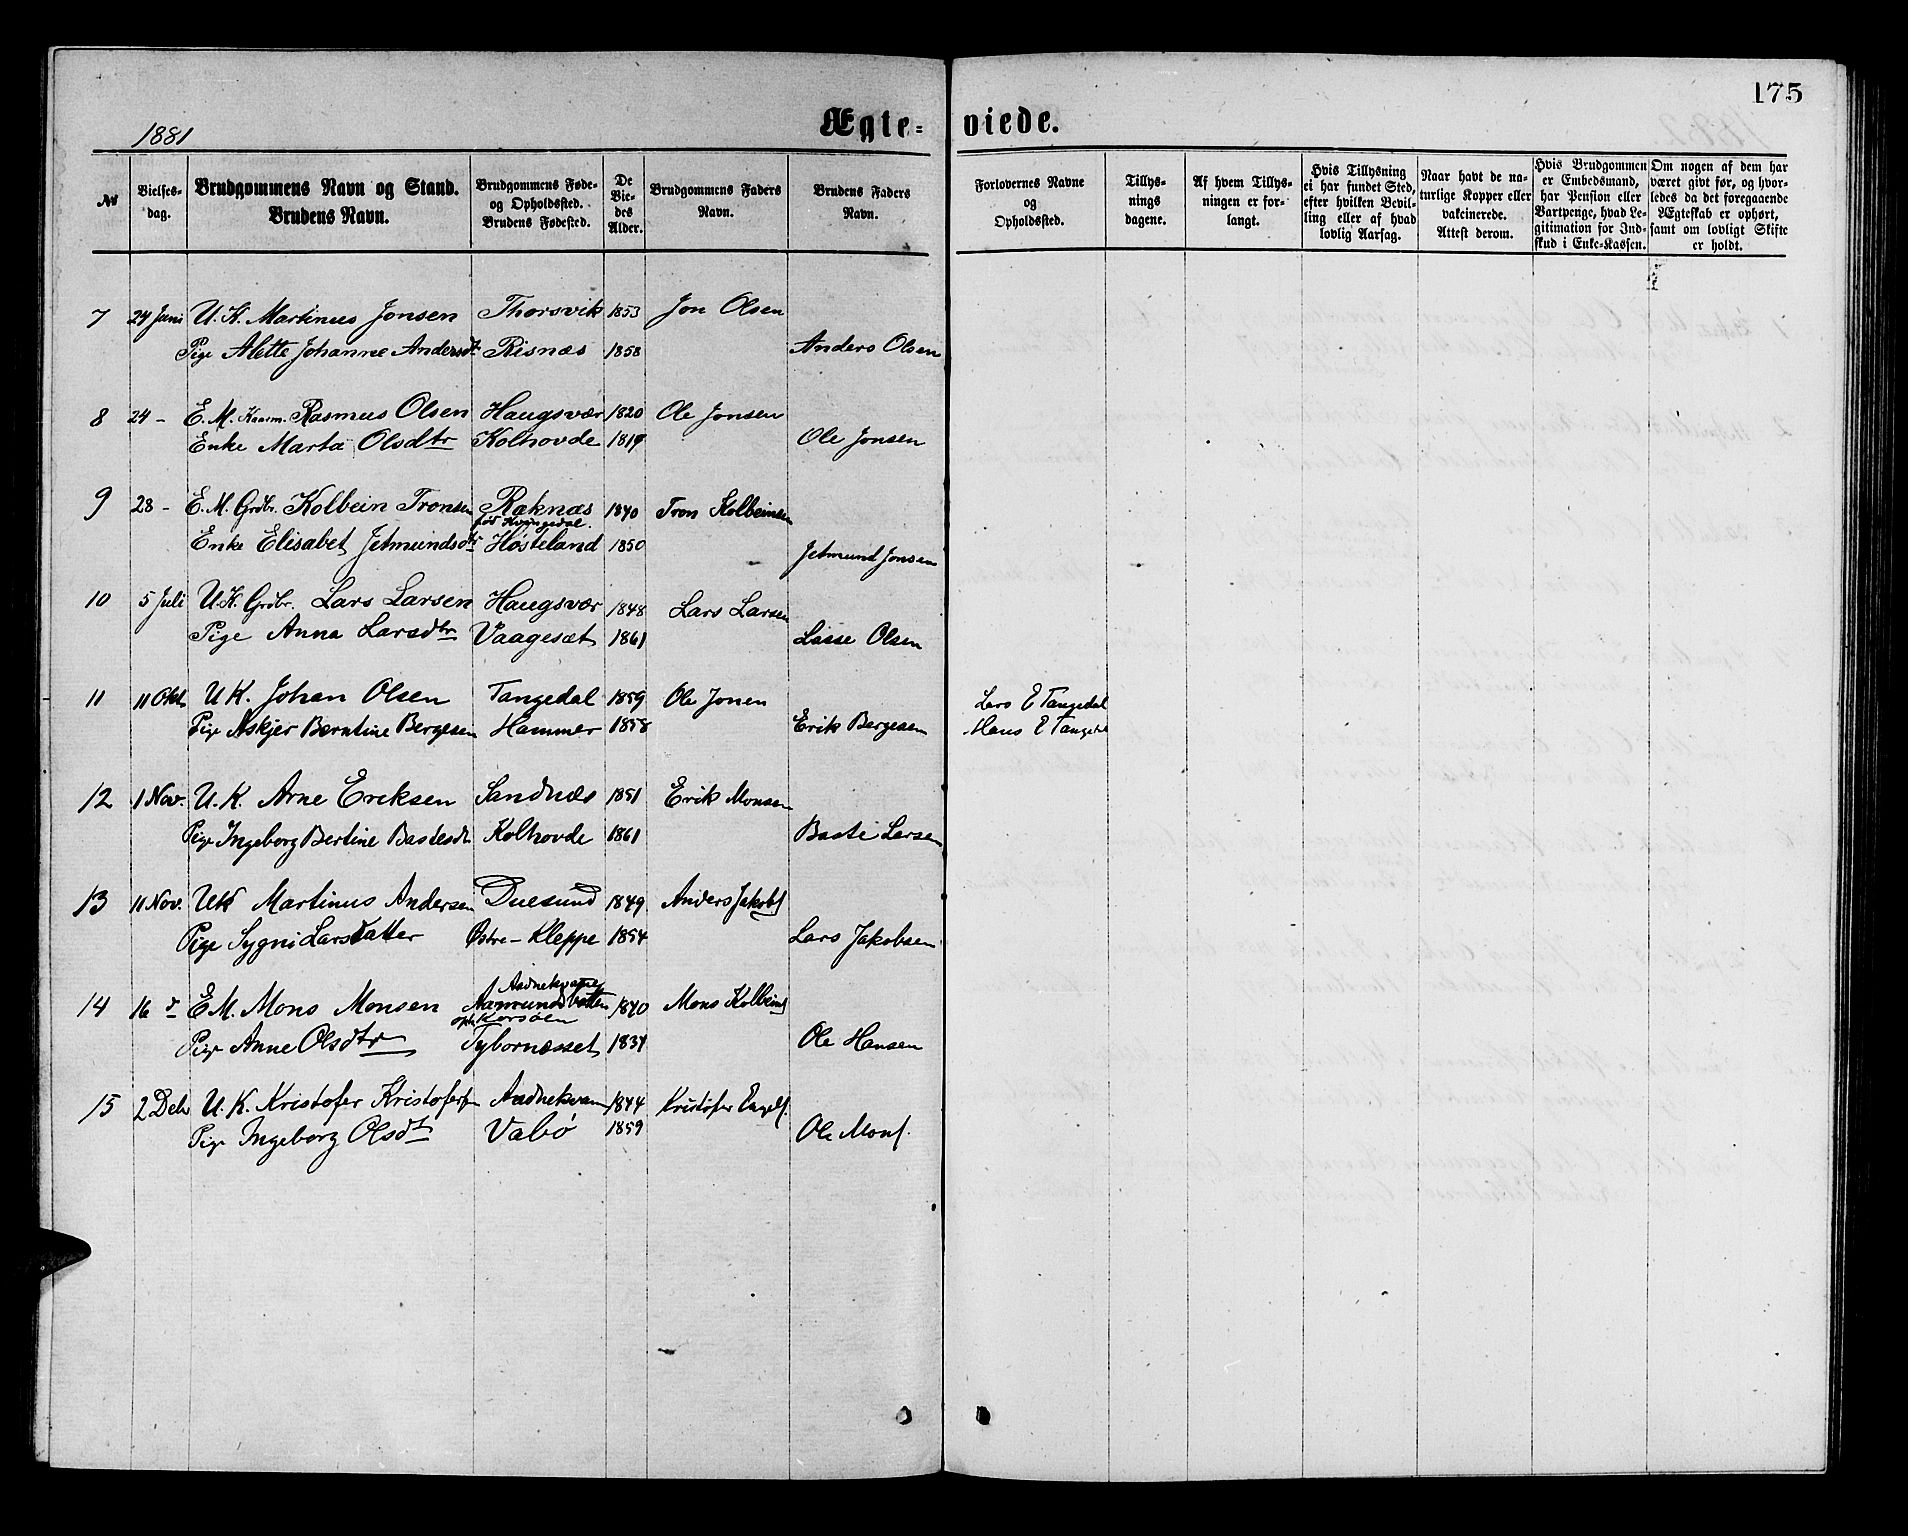 175
1881 Ægte-viede.
№ | Vielses-dag. | Brudgommens Navn og Stand. Brudens Navn. | Brudgommens Føde- og Opholdssted. Brudens Fødested. | De Vie-des Alder. | Brudgommens Faders Navn. | Brudens Faders Navn. | Forlovernes Navne og Opholdssted. | Tillys-nings dagene. | Af hvem Tillys-ningen er for-langt. | Hvis Tillysning ei har fundet Sted, efter hvilken Bevil-ling eller af hvad lovlig Aarsag. | Naar havt de na-turlige Kopper eller vakcinerede. Attest derom. | Hvis Brudgommen er Embedsmand, har Pension eller Vartpenge, hvad Le-gitimation for Ind-skud i Enke-Kassen. | Om nogen af dem har været givt før, og hvor-ledes da det foregaaende Ægteskab er ophørt, samt om lovligt Skifte er holdt.
7 24 Juni U. K. Martinus Jonsen Thorsvik 1853 Jon Olsen
Pige Alette Johanne Andersdt Risnæs 1858 Anders Olsen
8 24 - E. M. Kaarm. Rasmus Olsen Haugsvær 1820 Ole Jonsen
Enke Marta Olsdtr Kolhovde 1819 Ole Jonsen
9 28 - E. M. Grdbr. Kolbein Tronsen Raknæs 1840 Tron Kolbeinsen
fød Kvingedal.
Enke Elisabet Jetmundsdtr Høsteland 1850 Jetmund Jonsen
10 5 Juli U. K. Grdbr. Lars Larsen Haugsvær 1848 Lars Larsen
Pige Anna Larsdtr Vaagesæt 1861 Lasse Olsen
11 11 Okt U K. Johan Olsen Tangedal 1859 Ole Jonen Lars E Tangedal
Pige Askjer Berntine Bergesen Hammer 1858 Erik Bergesen Hans E Tangedal
12 1 Nov. U. K. Arne Eriksen Sandnæs 1851 Erik Monsen
Pige Ingeborg Bertine Bastesdt Kolhovde 1861 Baste Larsen
13 11 Nov. UK Martinus Andersen Duesund 1849 Anders Jakobs
Pige Sygni Larsdatter Østre - Kleppe 1854 Lars Jakobsen
Aadnekvame
14 16 d E M. Mons Monsen Aamundsbotten 1840 Mons Kolbeins
oph Korsøen
Pige Anne Olsdtr Tybornæsset 1834 Ole Hansen
15 2 Deb U. K. Kristofer Kristofers Aadnekvam 1844 Kristofer Engels.
Pige Ingeborg Olsdt Vabø 1859 Ole Mons.